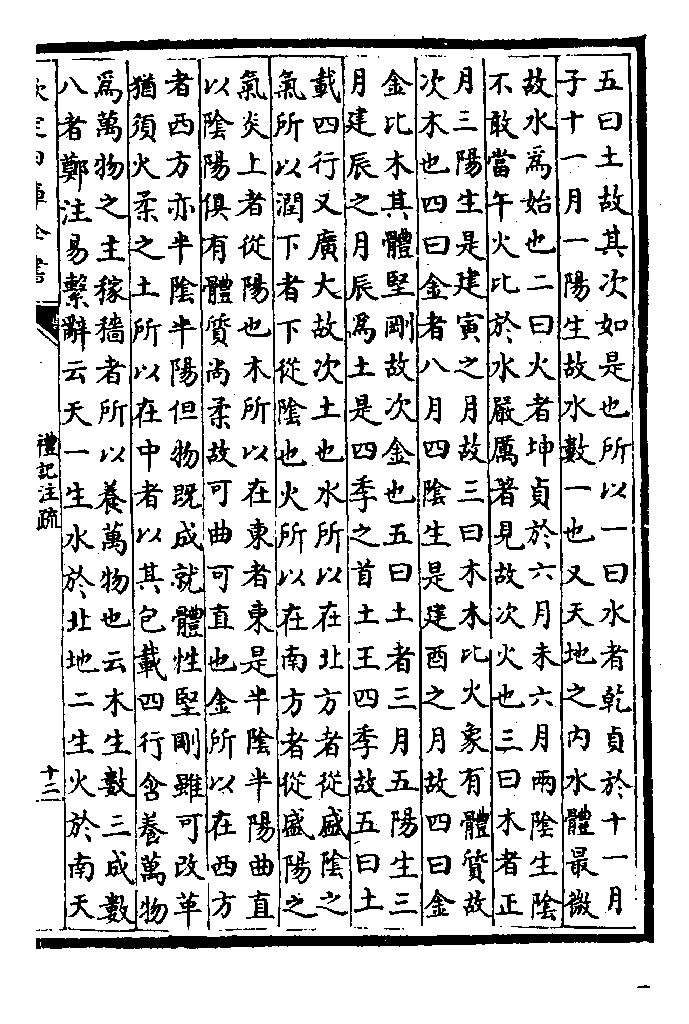 五曰土故其次如是也所以一曰水者乾貞於十一月
子十一月一陽生故水數一也又天地之內水體最微
故水爲始也二曰火者坤貞於六月未六月兩陰生陰
不敢當午火比於水嚴厲著見故次火也三曰木者正
月三陽生是建寅之月故三曰木木比火象有體質故
次木也四曰金者八月四陰生是建酉之月故四曰金
金比木其體堅剛故次金也五曰土者三月五陽生三
月建辰之月辰爲土是四季之首土王四季故五曰土
載四行又廣大故次土也水所以在北方者從盛陰之
氣所以潤下者下從陰也火所以在南方者從盛陽之
氣炎上者從陽也木所以在東者東是半陰半陽曲直
以陰陽俱有體質尚柔故可曲可直也金所以在西方
者西方亦半陰半陽但物既成就體性堅剛雖可改革
猶須火柔之土所以在中者以其包載四行含養萬物
爲萬物之主稼穡者所以養萬物也云木生數三成數
八者鄭注易繫辭云天一生水於北地二生火於南天
欽定四庫全書
禮記注疏
十三